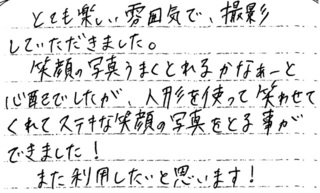 とても楽しい雰囲気で、撮影
していただきました。
笑顔の写真うまくとれるかなぁーと
心配でしたが、人形を使って笑わせて
くれてステキな笑顔の写真をとる事が
できました！
また利用したいと思います！